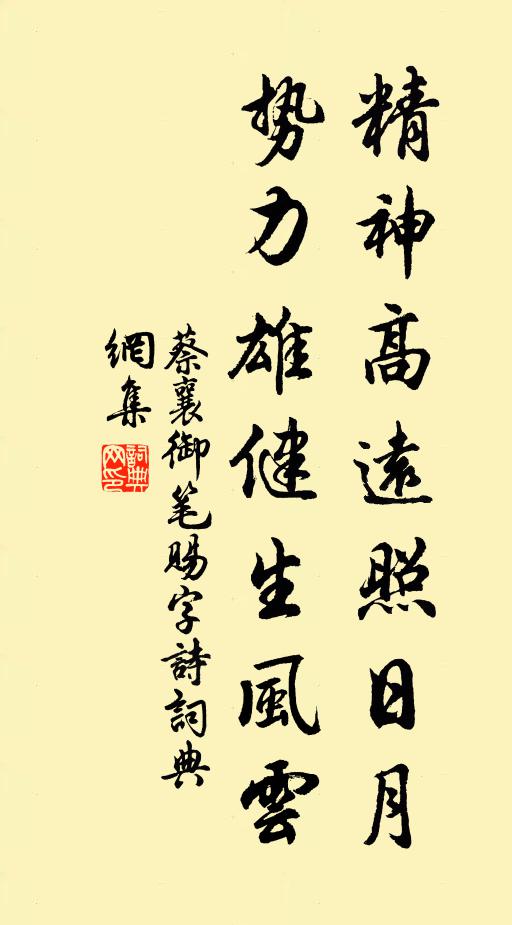 精神高遠照日月
势力雄健生風雲
蔡襄御笔賜字詩詞典
網集
詞典
网印